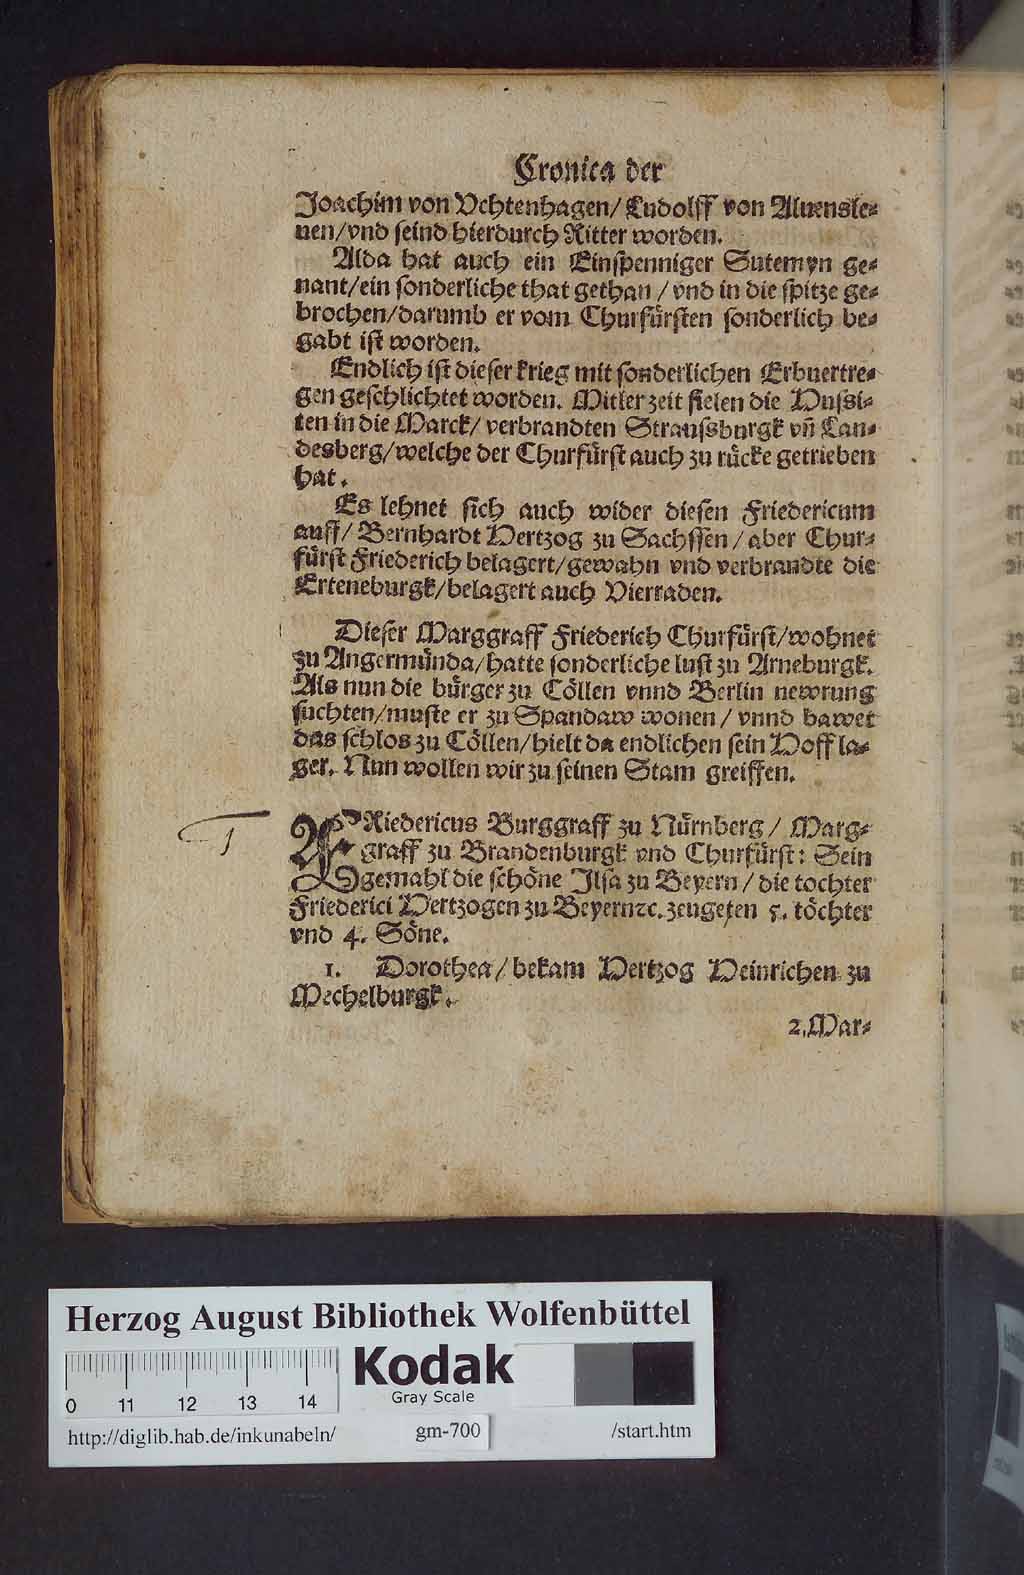 Cronica der
Joachim von Vchtenhagen/ Ludolff von Aluensle⸗
uen/vnd seind hierdurch Ritter worden.
Alda hat auch ein Einspenniger Sutemyn ge⸗
nant/ein sonderliche that gethan / vnd in die spitze ge⸗
brochen/darumb er vom Churfürsten sonderlich be⸗
gabt ist worden.
Endlich ist dieser krieg mit sonderlichen Erbuertre⸗
gen geschlichtet worden. Mitler zeit fielen die Hussi⸗
ten in die Marck/ verbrandten Straussburgk vñ Lan⸗
desberg/welche der Churfürst auch zu rücke getrieben
hat.
Es lehnet sich auch wider diesen Friedericum
auff/ Bernhardt Hertzog zu Sachssen / aber Chur⸗
fürst Friederich belagert/gewahn vnd verbrandte die
Erteneburgk/belagert auch Vierraden.
Dieser Marggraff Friederich Churfürst/wohnet
zu Angermünda/hatte sonderliche lust zu Arneburgk.
Als nun die bürger zu Cöllen vnnd Berlin newrung
suchten/muste er zu Spandaw wonen / vnnd bawet
das schlos zu Cöllen/hielt da endlichen sein Hoff la⸗
ger. Nun wollen wir zu seinen Stam greiffen.
FRiedericus Burggraff zu Nürnberg / Marg⸗
graff zu Brandenburgk vnd Churfürst: Sein
gemahl die schöne Ilsa zu Beyern / die tochter
Friederici Hertzogen zu Beyernꝛc. zeugeten 5. töchter
vnd 4. Söne.
1. Dorothea/ bekam Hertzog Heinrichen zu
Mechelburgk.
2. Mar⸗
Herzog August Bibliothek Wolfenbüttel
Kodak
Gray Scale
0 11 12 13 14
http://diglib.hab.de/inkunabeln/ gm-700 /start.htm